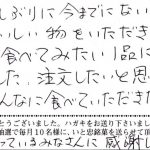 しぶりに今までにない
いしい物をいただき
食べてみたい1品に
した。注文したいと思
んなに食べていただきた
とうございました。ハガキをお送り下さいま
抽選で毎月10名様に、いと忠銘菓を送らせて頂
っているみなさんに感謝し